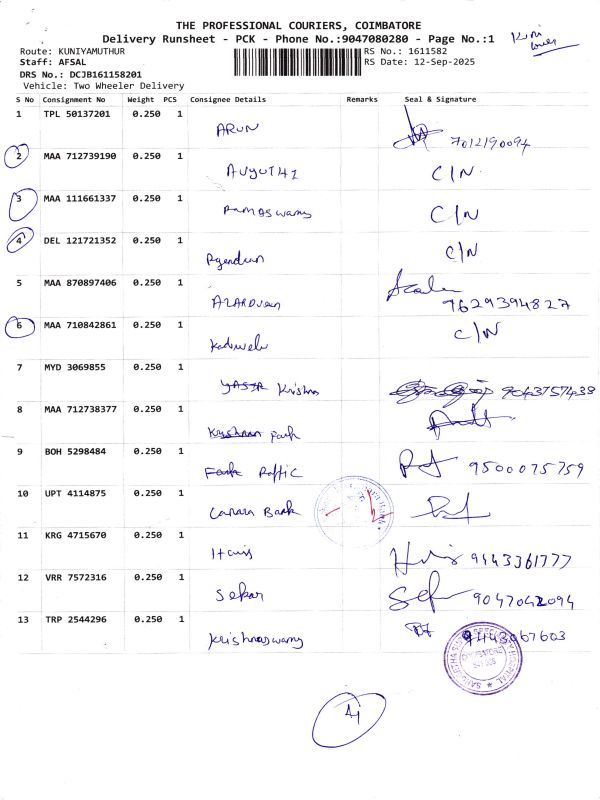 THE PROFESSIONAL COURIERS, COIMBATORE
Delivery Runsheet - PCK - Phone No.:9047080280 - Page No.:1
Route: KUNIYAMUTHUR RS No.: 1611582
Staff: AFSAL RS Date: 12-Sep-2025
DRS No.: DCJB161158201
Vehicle: Two Wheeler Delivery
S No Consignment No Weight PCS Consignee Details Remarks Seal & Signature
1 TPL 50137201 0.250 1 ARUN 7012190094
2 MAA 712739190 0.250 1 AVYUTHI C/N
3 MAA 111661337 0.250 1 Ramaswamy C/N
4 DEL 121721352 0.250 1 C/N
5 MAA 870897406 0.250 1 7629394827
6 MAA 710842861 0.250 1 Kadirvelu C/N
7 MYD 3069855 0.250 1 Krishna 9043757438
8 MAA 712738377 0.250 1
9 BOH 5298484 0.250 1 Raffic 9500075759
10 UPT 4114875 0.250 1 Canara Bank
11 KRG 4715670 0.250 1 Haris 9443361777
12 VRR 7572316 0.250 1 Sekar 9047042094
13 TRP 2544296 0.250 1 Krishnaswamy 9443067603
COIMBATORE
4